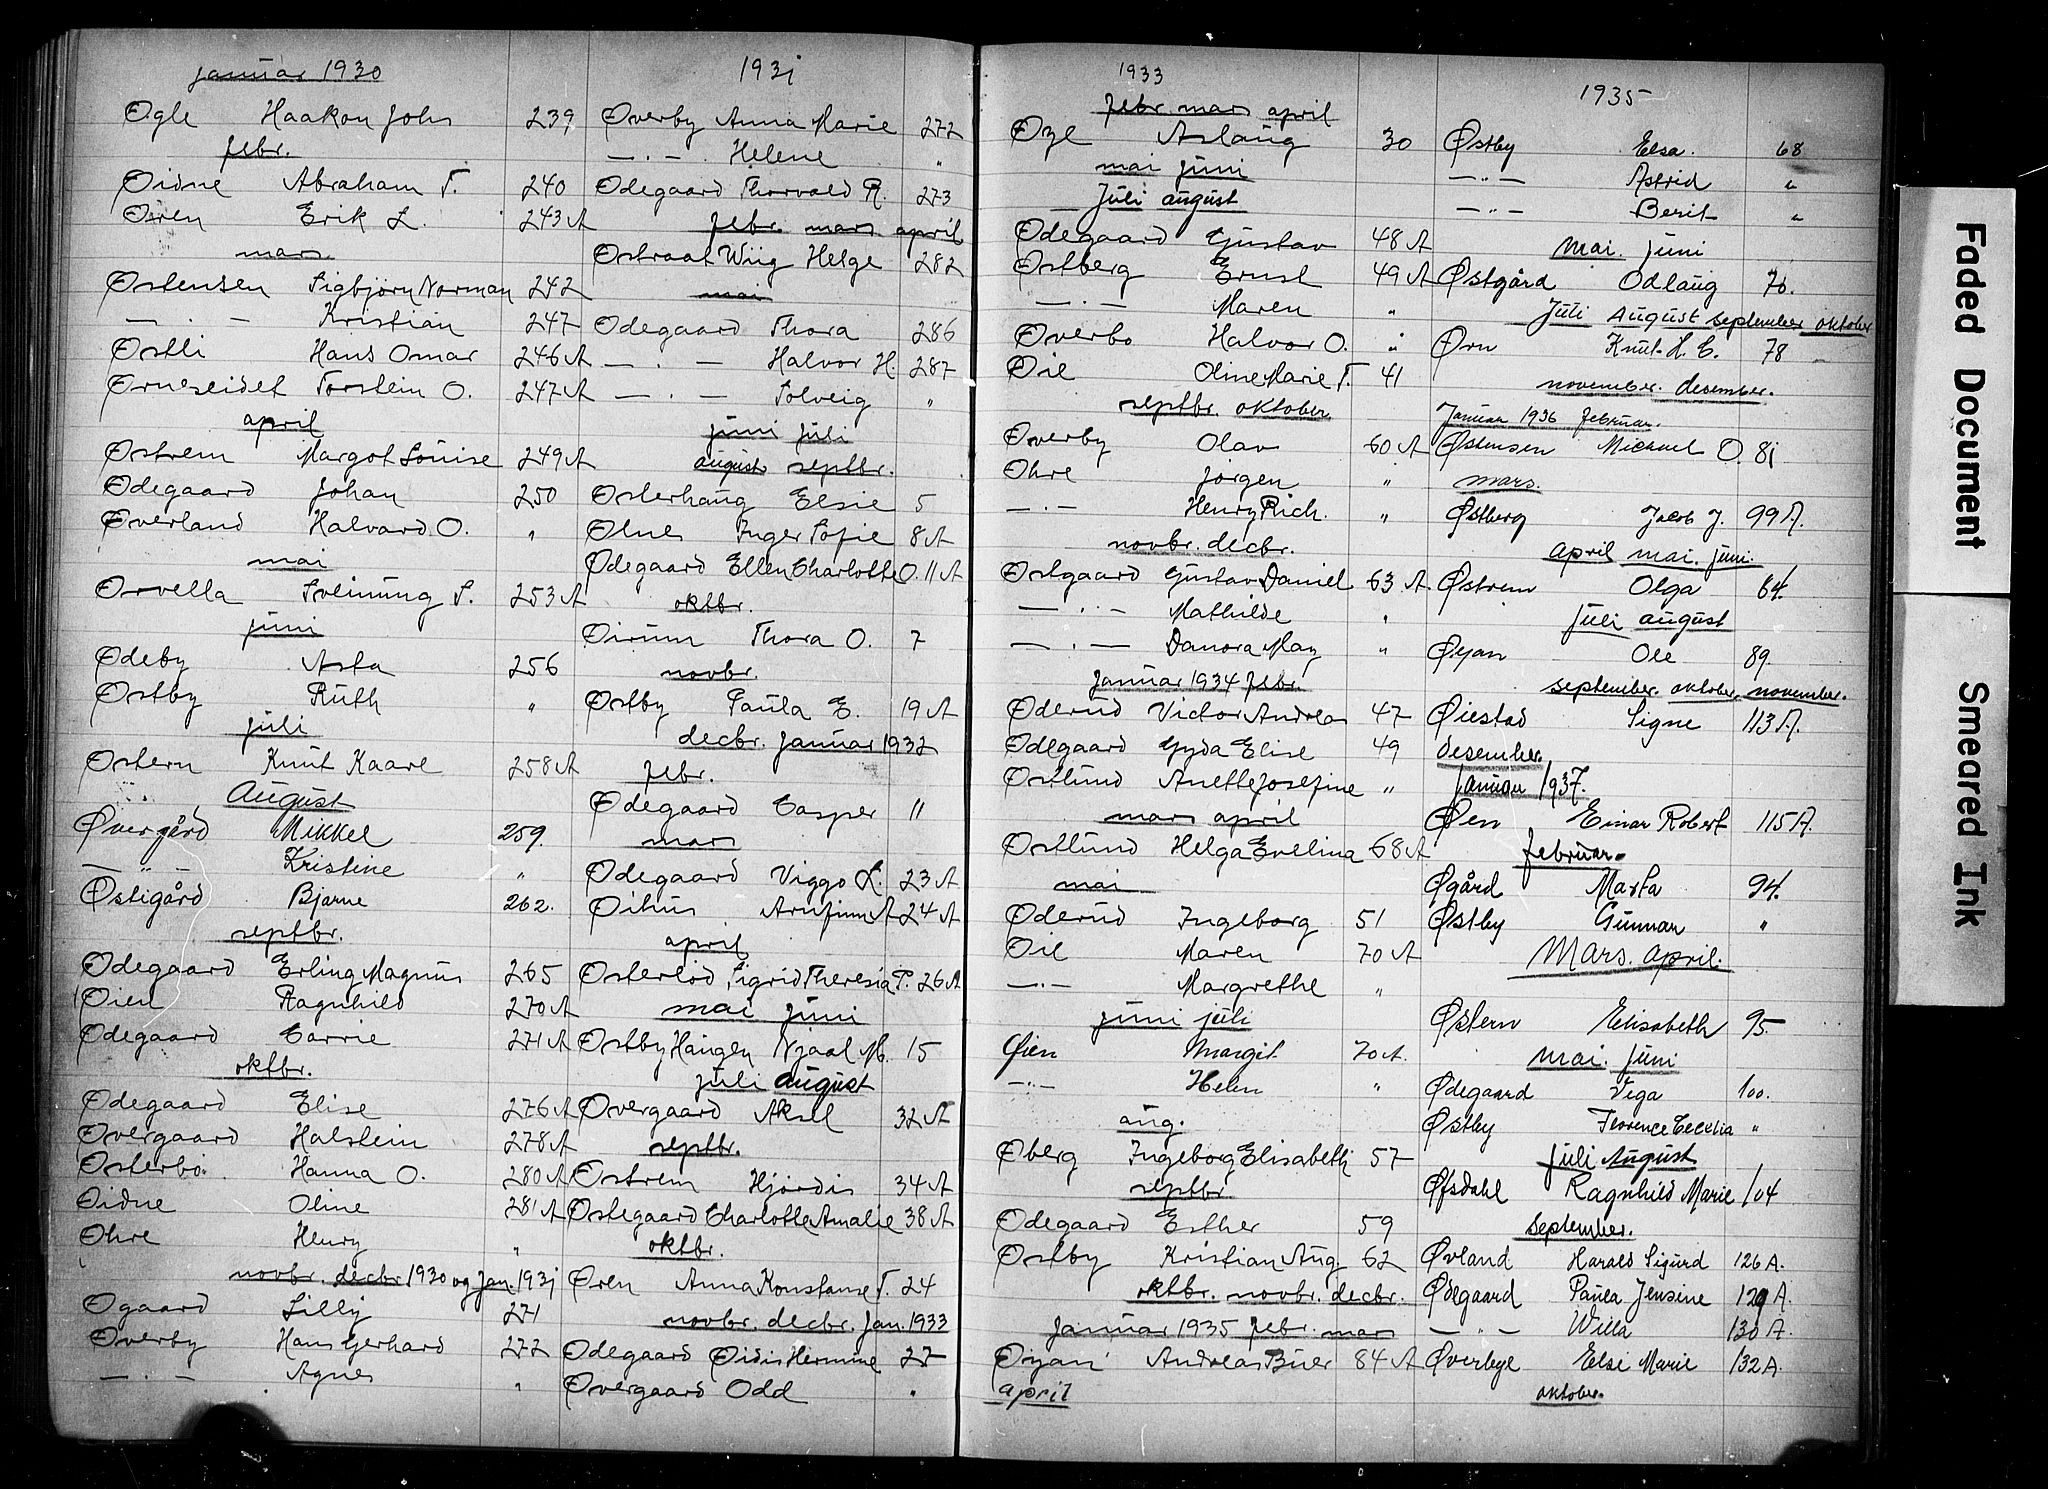 januar 1930
Øgle Haakon John 239
febr.
Øidne Abraham T. 240
Øren Erik L. 243 A
mars
Østensen Sigbjørn Norman 242
— . — Kristian 247
Østli Hans Omar 246 A
Ørneseidet Torstein O. 247 A
april
Østrem Margot Louise 249 A
Ødegaard Johan 250
Øverland Halvard O. "
mai
Ørvella Sveinung S. 253 A
juni
Ødeby Asta 256
Østby Ruth "
juli
Østern Knut Kaare 258 A
August
Øvergård Mikkel 259.
— " — Kristine "
Østigård Bjarne 262.
septbr.
Ødegaard Erling Magnus 265
Øien Ragnhild 270 A
Ødegaard Carrie 271 A
oktbr.
Ødegaard Elise 276 A
Øvergaard Halstein 278 A
Østerbø. Hanna O. 280 A
Øidne Oline 281 A
Øhre Henry "
novbr. decbr. 1930 og jan. 1931
Øgaard Lilly 271
Øverby Hans Gerhard 272
— . — Agnes "
1931
Øverby Anna Marie 272
— . — Helene "
Ødegaard Thorvald R. 273
febr. mars april
Østraat Wiig Helge 282
mai
Ødegaard Thora 286
— . — Halvor H. 287
— . — Solveig "
juni juli
august septbr.
Østerhaug Elsie 5
Ølnes Inger Sofie 8 A
Ødegaard Ellen Charlotte O. 11 A
oktbr.
Øirum Thora O. 7
novbr.
Østby Paula E. 19 A
decbr. januar 1932
febr.
Ødegaard Casper 11
mars
Ødegaard Viggo L. 23 A
Øihus Arnfinn A 24 A
april
Østerlöd, Sigrid Theresia T. 26 A
mai juni
Østby Haugen Njaal M. 15
juli august
Øvergaard Aksel 32 A
septbr.
Østrem Hjördis 34 A
Østegaard Charlotte Amalie 38 A
oktbr.
Øren Anna Konstanse T. 24
novbr. decbr. Jan. 1933
Ødegaard Øidis Hermine 27
Øvergaard Odd "
1933
febr. mars april
Øye Aslaug 30
mai juni
Juli august
Ødegaard Gustav 48 A
Østberg Ernst 49 A
— . — Maren "
Øverbø Halvor O. "
Øie Oline Marie T. 41
septbr. oktober
Øverby Olav 60 A
Øhre Jörgen "
— . — Henry Rich. "
novbr. decbr.
Østgaard Gustav Daniel 63 A
— . — Mathilde "
— . — Danora May "
Januar 1934 febr.
Øderud Victor Andreas 47
Ødegaard Gyda Elise 49
Østlund Anette Josefine "
mars april
Østlund Helga Evelina 68 A
mai
Øderud Ingeborg 51
Øie Maren 70 A
— . — Margrethe "
juni juli
Øien Margit 70 A.
— " — Helen "
aug.
Øberg Ingeborg Elisabeth 57
septbr
Ødegaard Esther 59
Østby Kristian Aug. 62
oktbr. novbr. decbr.
Januar 1935 febr. mars
Øyan Andreas Buer 84 A
april
1935
Østby Elsa. 68
— " — Astrid "
— " — Berit "
Mai. Juni
Østgård Odlaug 70.
Juli August september oktober
Ørn Knut H. C. 78
november. desember.
Januar 1936 februar.
Østensen Michael O. 81
mars.
Østberg Jacob J. 99 A.
april mai. juni.
Østrem Olga 84.
juli august
Øyan Ole 89.
september. oktober. november.
Øiestad Signe 113 A.
desember.
Januar 1937.
Øen Einar Robert 115 A.
februar.
Øgård Marta 94.
Østby Gunnar "
Mars. april.
Østern Elisabeth 95
Mai. Juni
Ødegaard Vega 100.
Østby Florence Cecelia "
Juli August
Øfsdahl Ragnhild Marie 104
September.
Øvland Harald Sigurd 126 A.
Ødegaard Paula Jensine 129 A.
— " — Willa 130 A.
Øverbye Else Marie 132 A.
oktober.
Faded Document
Smeared Ink